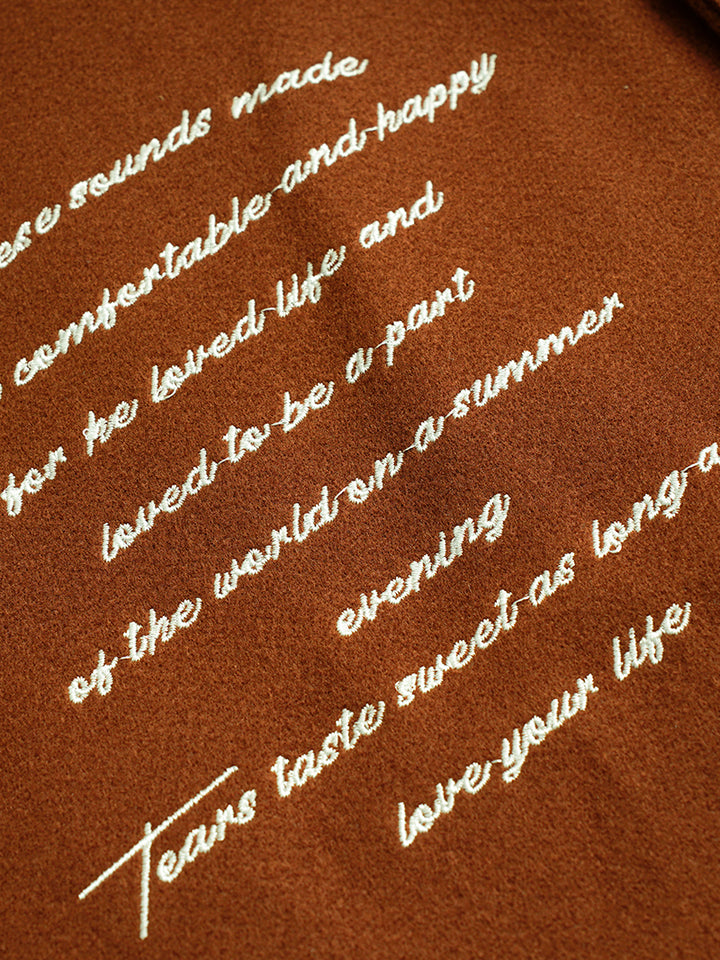 ese sounds made
comfortable and happy
for he loved life and
loved to be a part
of the world on a summer
evening
Tears taste sweet as long a
love your life